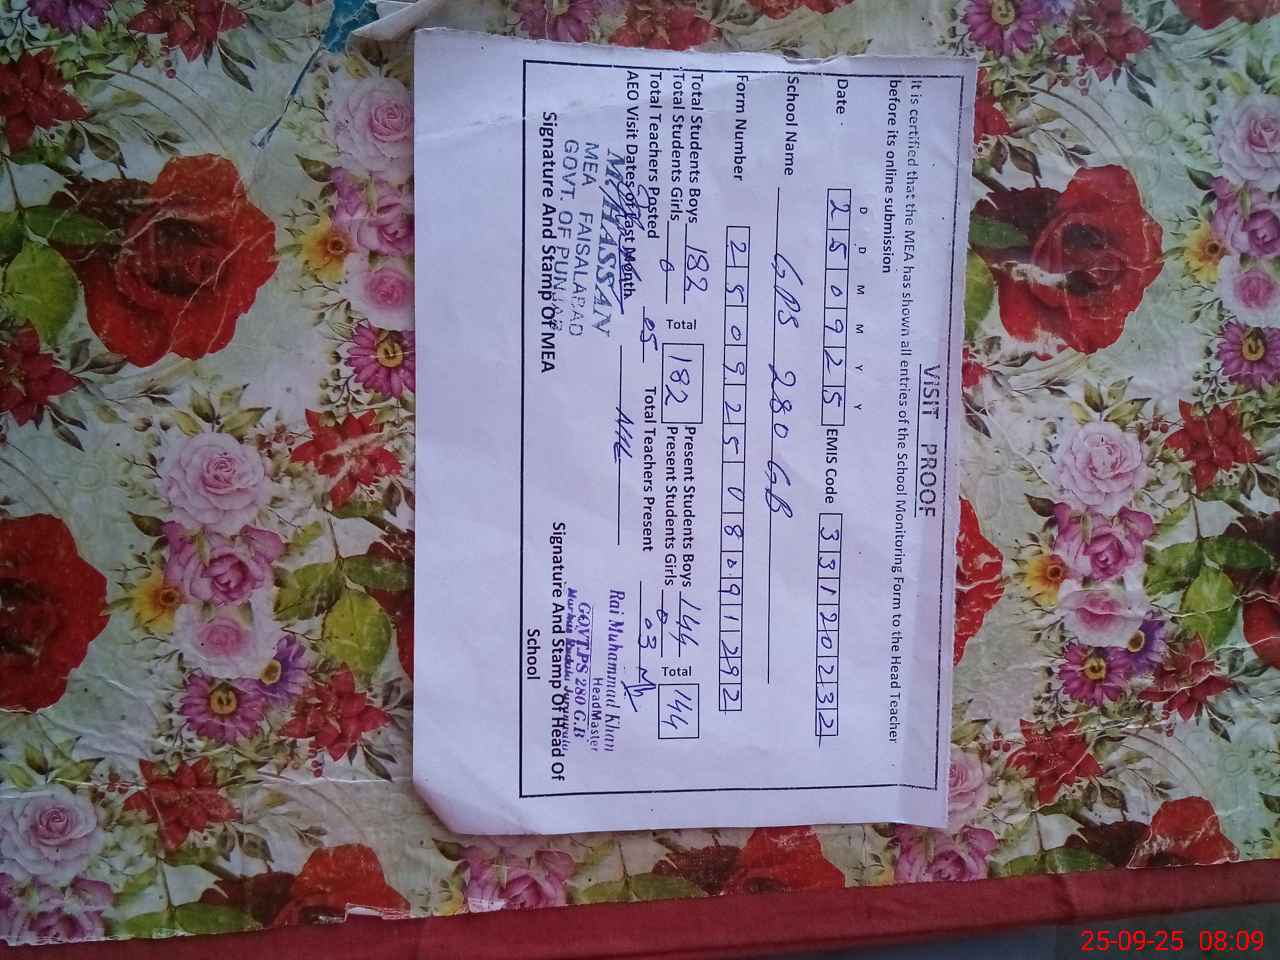 VISIT PROOF
It is certified that the MEA has shown all entries of the School Monitoring Form to the Head Teacher
before its online submission
D D M M Y Y
Date 250925 EMIS Code 33120232
School Name GPS 280 GB
Form Number 25092508091292
Total Students Boys 182 Total 182 Present Students Boys 144 Total 144
Total Students Girls 0 Present Students Girls 0
Total Teachers Posted 05 Total Teachers Present 03
AEO Visit Dates of Last Month NIL
HASSAN
MEA FAISALABAD
GOVT. OF PUNJAB
Signature And Stamp Of MEA
Rai Muhammad Khan
HeadMaster
GOVT.PS 280 G.B
Signature And Stamp Of Head Of
School
25-09-25 08:09